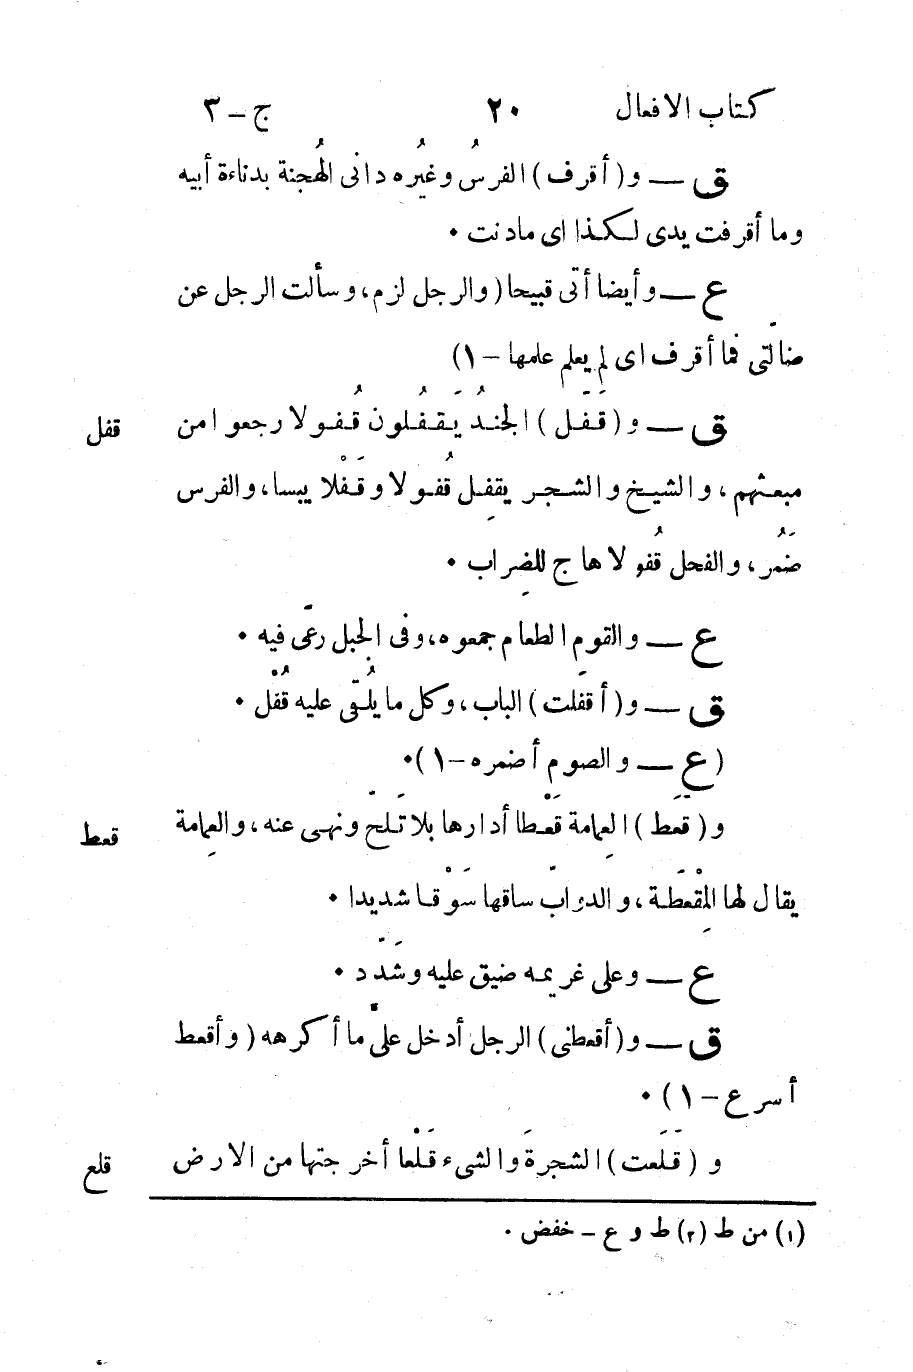 كتاب الافعال ٢٠ ج – ٣
ق — و (أقرف) الفرسُ وغيرُه دانى الهُجنة بدناءة أبيه
وما أقرفت يدى لكذا اى مادنت ·
ع — وأيضا أتى قبيحا (والرجل لزم، وسألت الرجل عن
ضالّتى فما أقرف اى لم يعلم علمها – ١)
ق — و (قَفَل) الجندُ يَقفُلون قُفولا رجعوا من
قفل
مبعثهم، والشيخ والشجر يقفِل قُفولا وقَفْلا يبسا، والفرس
ضَمُر، والفحل قُفولا هاج للضِراب ·
ع — والقوم الطعام جمعوه، وفى الجبل رعَى فيه ·
ق — و (أقفَلت) الباب، وكل ما يُلقّى عليه قُفْل ·
(ع — والصوم أضمره – ١) ·
و (قعَط) العِمامة قَعْطا أدارها بلا تَلَحٍّ ونهى عنه، والعِمامة
قعط
يقال لها المِقْعَطة، والدوابّ ساقها سَوْقا شديدا ·
ع — وعلى غريمه ضيق عليه وشَدّد ·
ق — و (أقعطنى) الرجل أدخل علىّ ما أكرهه (وأقعط
أسرع – ١) ·
و (قَلَعت) الشجرةَ والشىء قَلْعا أخرجتها من الارض
قلع
(١) من ط (٢) ط و ع – خفض ·